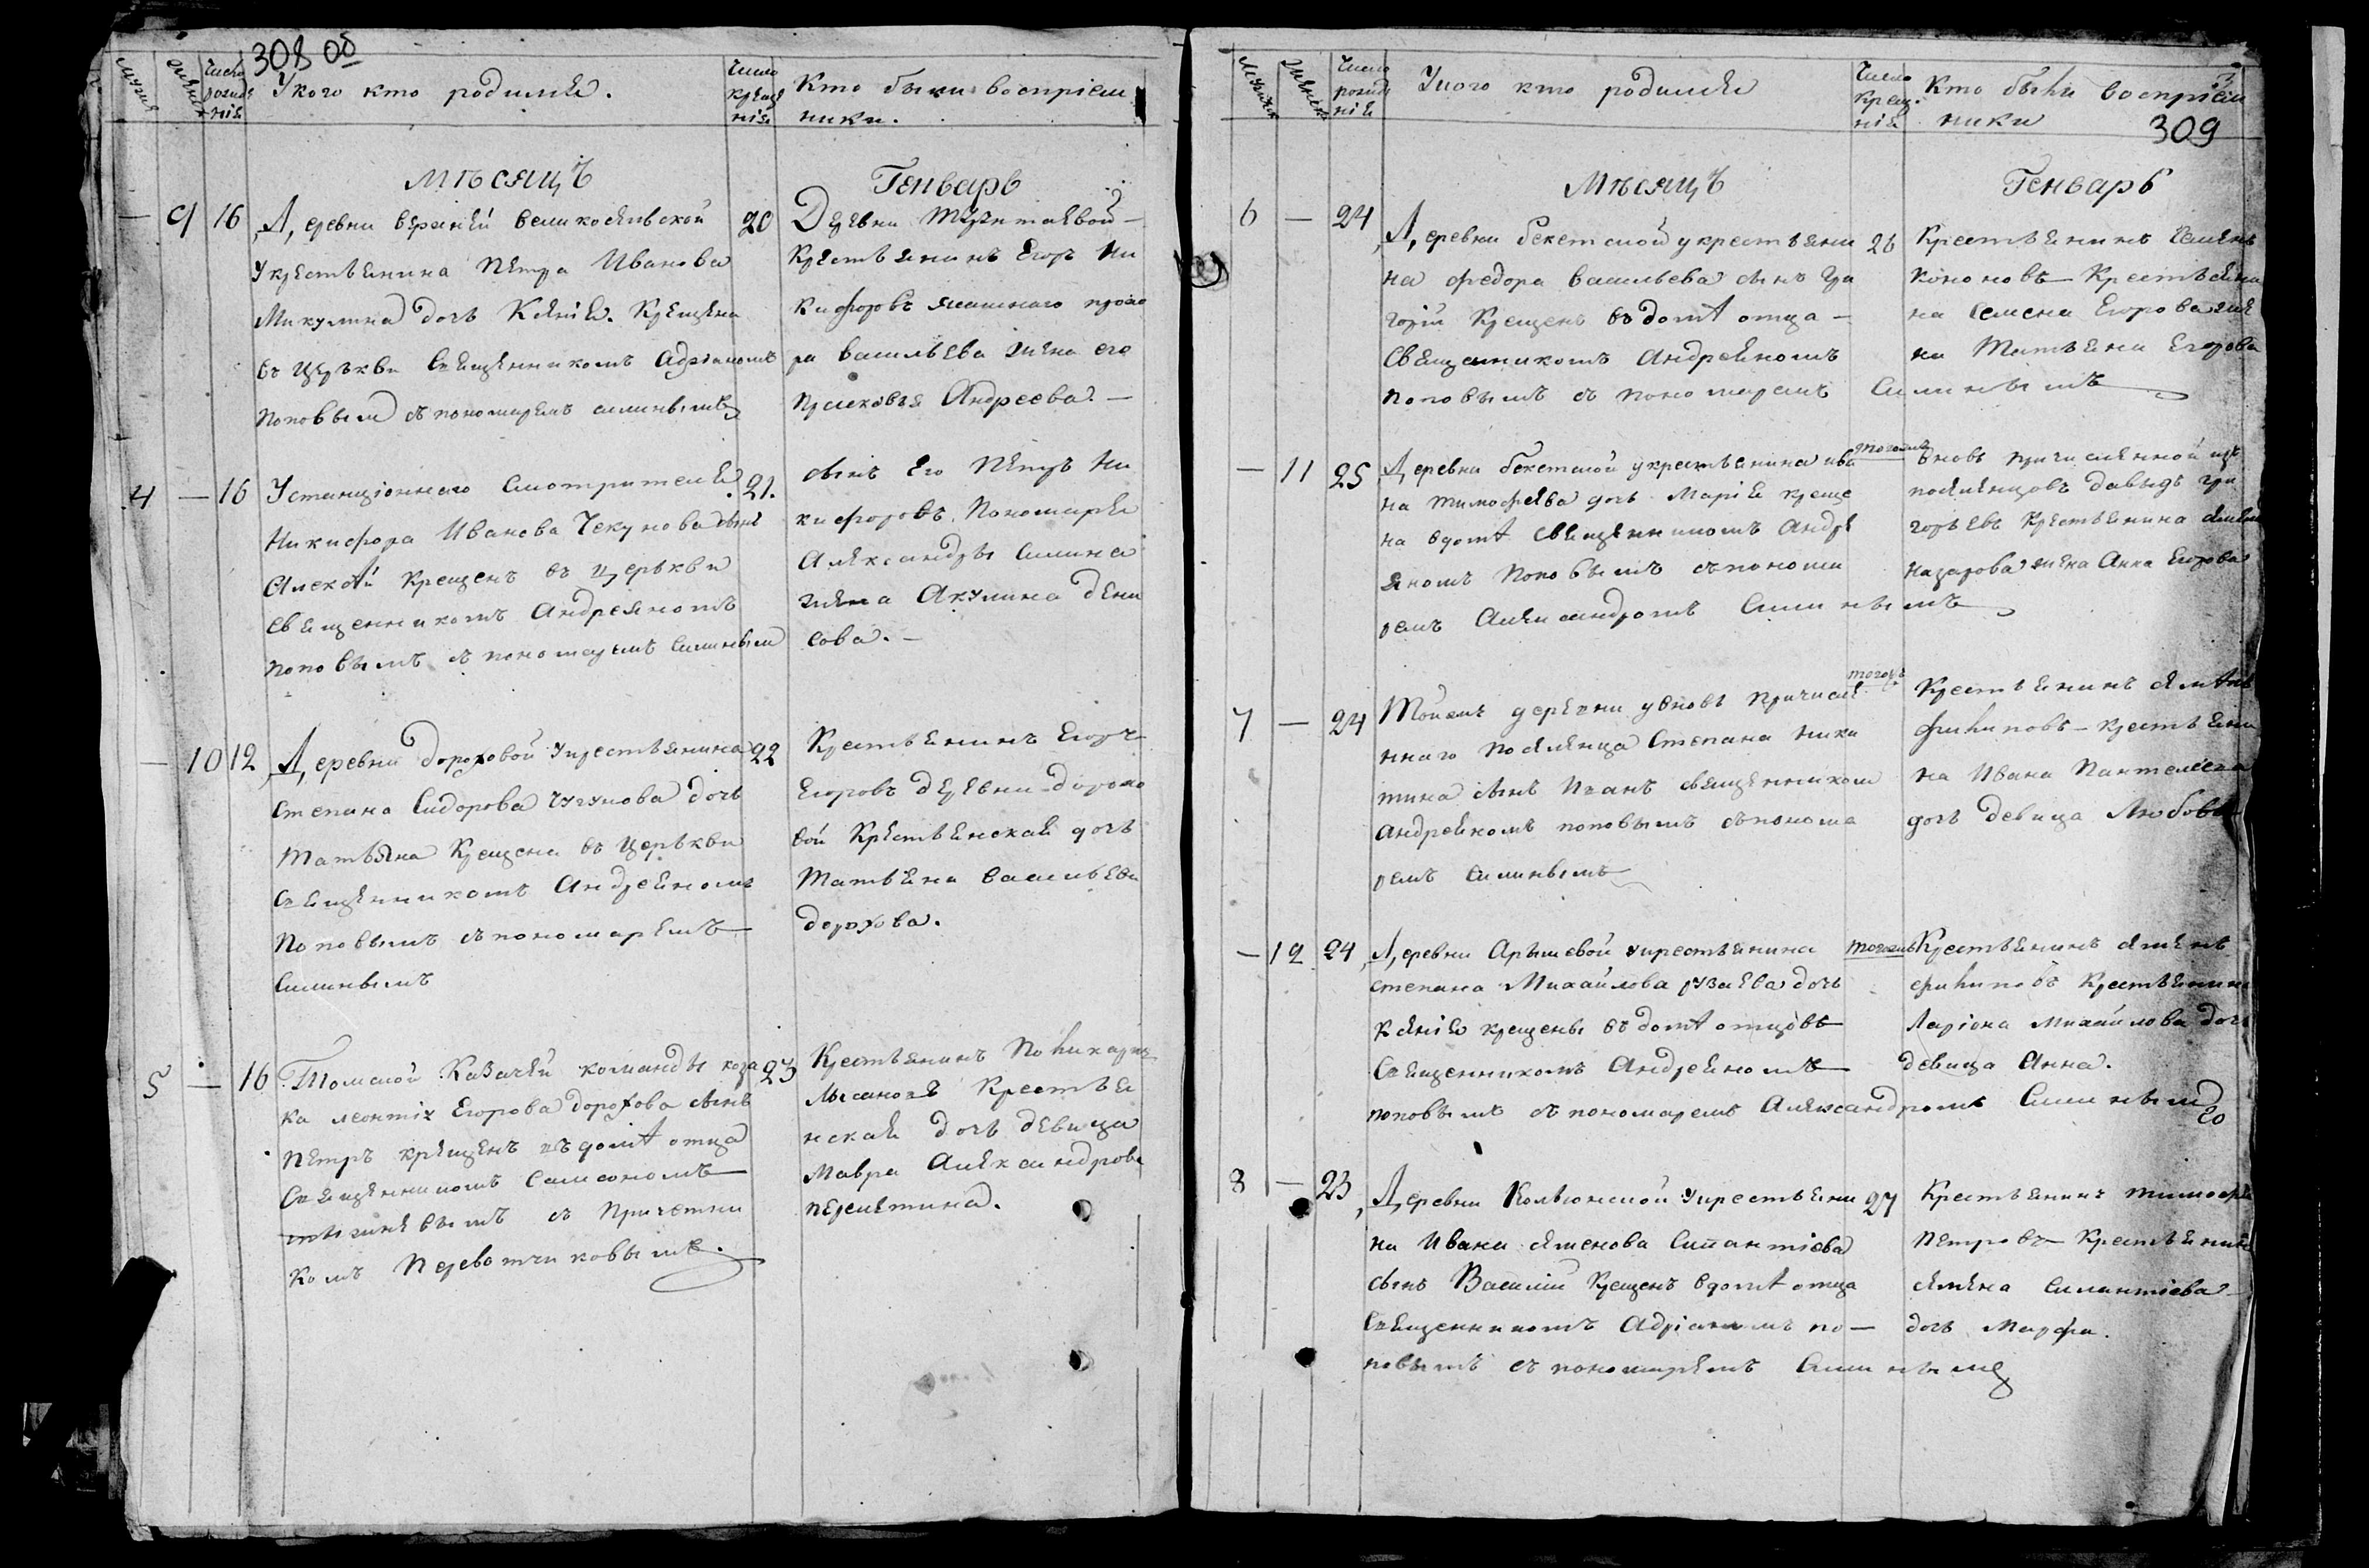 308 об
Мужеск женск Число рожде нія
У кого кто родился.
Число креще нія
Кто были воспріем
ники.
Мѣсяцъ
Генварь
— 9 16
Деревни верхней великосельской
У крестьянина Петра Иванова
Микулина дочь Ксенія. Крещена
въ Церькви Священникомъ Адріаномъ
Поповым съ пономаремъ силинымъ
20
Деревни
Крестьянинъ Егоръ Ни
кифоровъ
ра васильева жена его
Прасковья Андреева. —
4 — 16
У станціоннаго Смотрителя
Никифора Ивановa Чекунова сынъ
Алексѣй Крещенъ въ церькви
священникомъ Андреяномъ
поповымъ съ пономаремъ Силиным
21.
сынъ Его Петръ Ни
кифоровъ. Пономаря
Александры Силина
жена Акулина Дени
сова. —
— 10 12
Деревни Дороховой У крестьянина
Степана Сидорова Чугунова дочь
Татьяна Крещена въ Церькви
Священникомъ Андреяномъ
Поповымъ съ пономаремъ
Силинымъ
22
Крестьянинъ Егоръ
Егоровъ деревни дорохо
вой Крестьянская дочь
Татьяна васильева
дорохова.
5 — 16
Томской Казачей команды каза
ка леонтія Егорова Дорохова сынъ
Петръ крещенъ въ домѣ отца
Священникомъ Самсономъ
съ Причетни
комъ Переводчиковымъ.
23
Крестьянинъ Поликарпъ
Лысановъ Крестья
нская дочь девица
Мавра Александрова
309
Мужеск женск Число рожде нія
У кого кто родился
Число крещ. нія
Кто были воспріем
ники
Мѣсяцъ
Генварь
6 — 24
Деревни бекетской у крестьяни
на федора васильева сынъ Гри
горій Крещенъ въ домѣ отца —
Священникомъ Андреяномъ
поповымъ съ пономаремъ Силинымъ
26
Крестьянинъ Семенъ
Кононовъ — Крестьяни
на Семена Егорова же
на Татьяна Егорова
— 11 25
Деревни бекетской у крестьянина ива
на тимофеева дочь Марія креще
на вдомѣ Священникомъ Андре
яномъ Поповымъ съ понома
ремъ Александромъ Силинымъ
тогожъ
вновь причисленной изъ
поселенцовъ давыдъ гри
горьевъ Крестьянина семена
Назарова жена Анна Егорова
7 — 24
Тойжъ деревни увновь Причисле
ннаго Поселенца Степана Ники
тина сынъ Иванъ священником
Андреяномъ поповымъ съ понома
ремъ Силинымъ
тогожъ
Крестьянинъ семенъ
филиповъ — крестьяни
на Ивана Пантелеева
дочь девица Любовь
— 12 24
Деревни Арышевой у крестьянина
степана Михайлова рузаева дочь
Ксенія крещена въ домѣ отцовъ
Священникомъ Андреяномъ
поповымъ съ пономаремъ Александромъ Силиным
тогожъ
Крестьянинъ семенъ
филиповъ Крестьянина
Ларіона Михайлова дочь
девица Анна.
8 — 23
Деревни Кольюнской У крестьяни
на Ивана семенова Силантіева
сынъ Василій Крещенъ вдомѣ отца
Священникомъ Адріаномъ по —
повымъ съ пономаремъ Силиным
27
Крестьянинъ тимофей
Петровъ — Крестьянина
семена Силантіева
дочь Марфа.